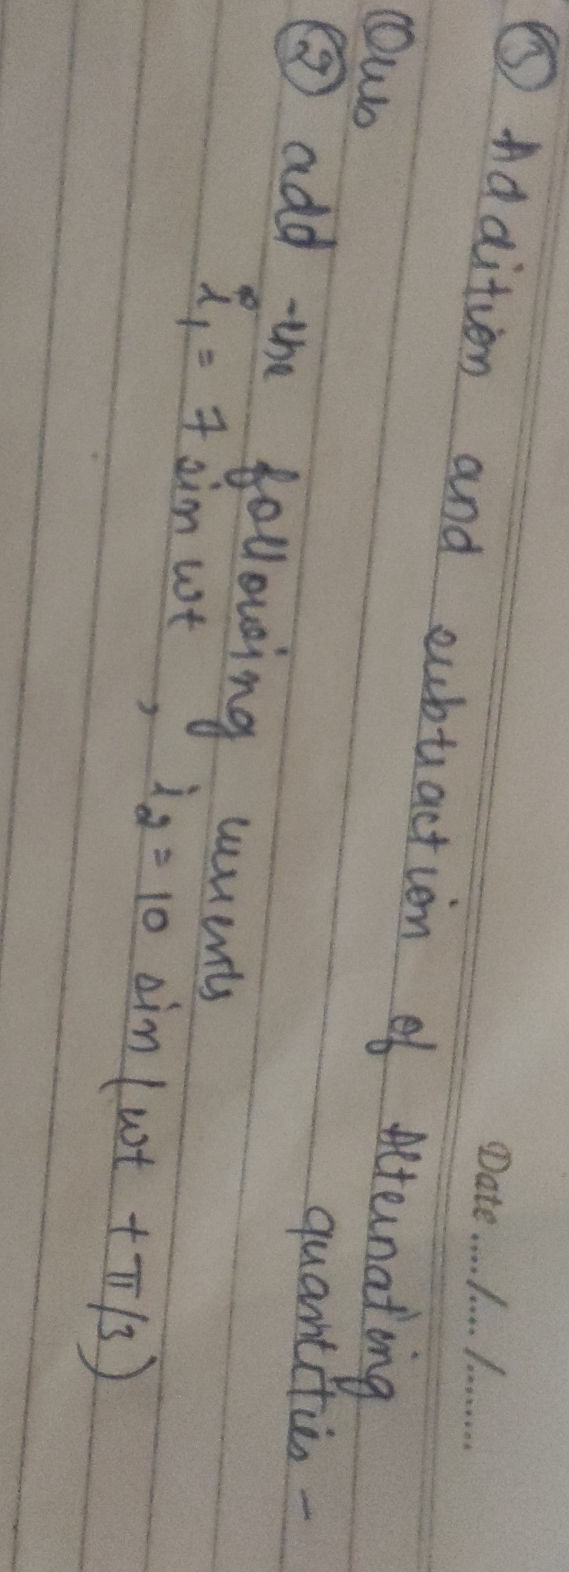 Date ..../..../........
③ Addition and subtraction of Alternating
quantities -
Ques
② add the following currents
i₁ = 7 sin wt , i₂ = 10 sin (wt + π/3)